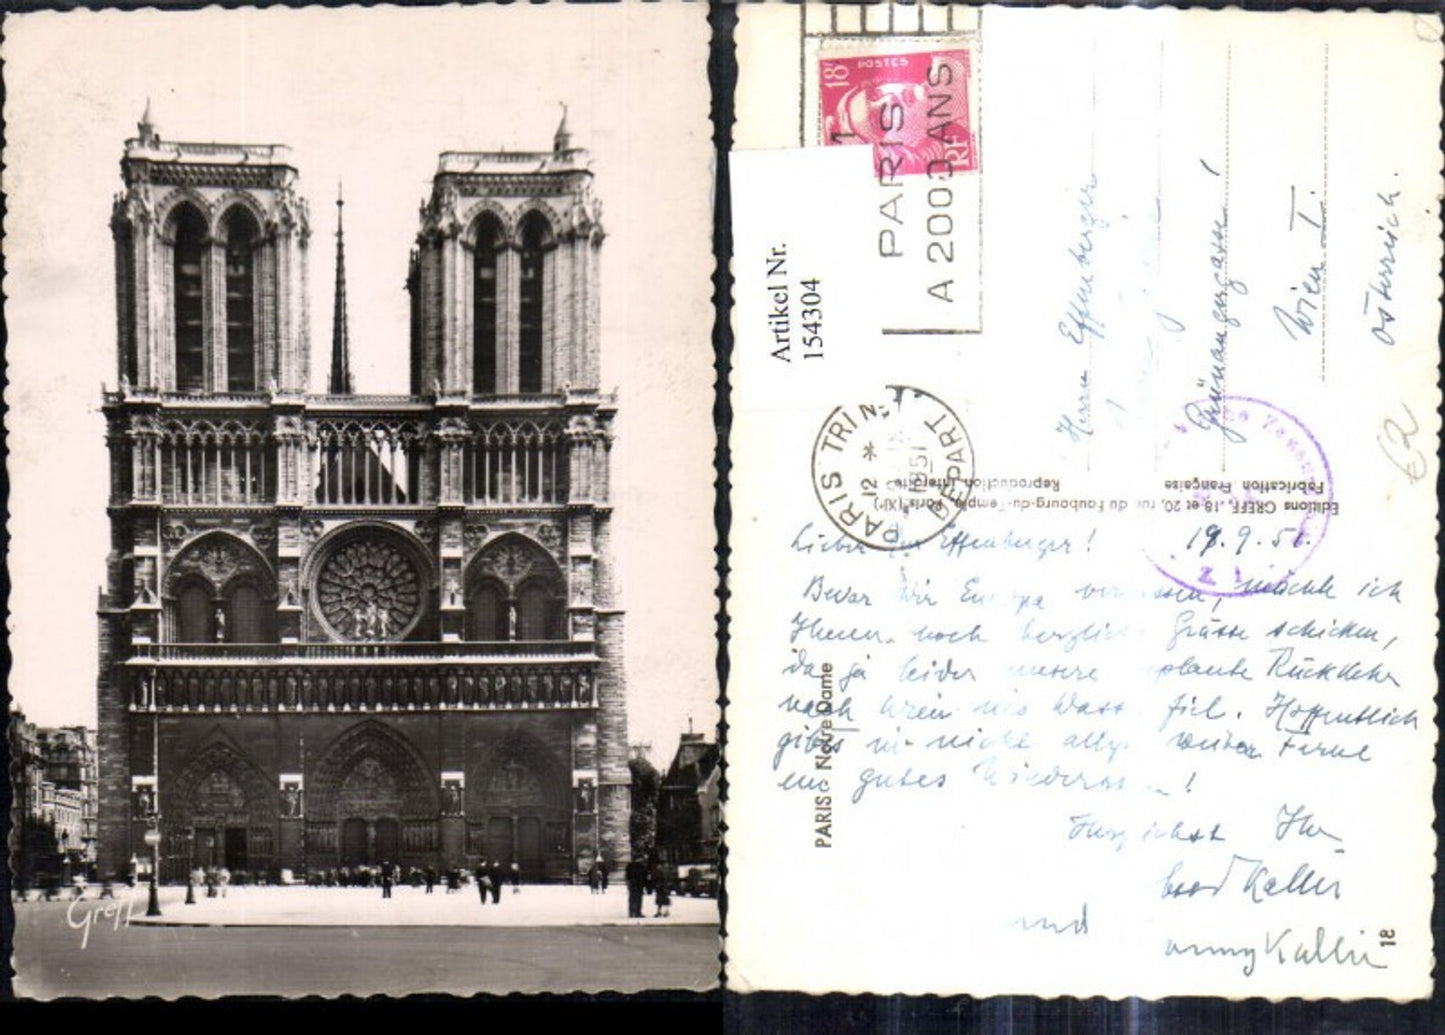 Greff
18F
POSTES
RF
1
PARIS
A 2000 ANS
Artikel Nr.
154304
PARIS TRI N
DEPART
12 *
1951
Herrn Effenberger
Grünangergasse 1
Wien I.
Österreich.
€2
Editions GREFF, 18 et 20, rue du Faubourg-du-Temple, Paris (XIe)
Fabrication Française
Reproduction Interdite
19.9.51.
Lieber Effenberger!
Bevor wir Europa verlassen, möchte ich
Ihnen noch herzliche Grüsse schicken,
da ja leider unsere geplante Rückkehr
nach Wien ins Wasser fiel. Hoffentlich
gibt's in nicht allzu weiter Ferne
ein gutes Wiedersehen!
Herzlichst Ihr
Keller
und
Keller
PARIS Notre Dame
18